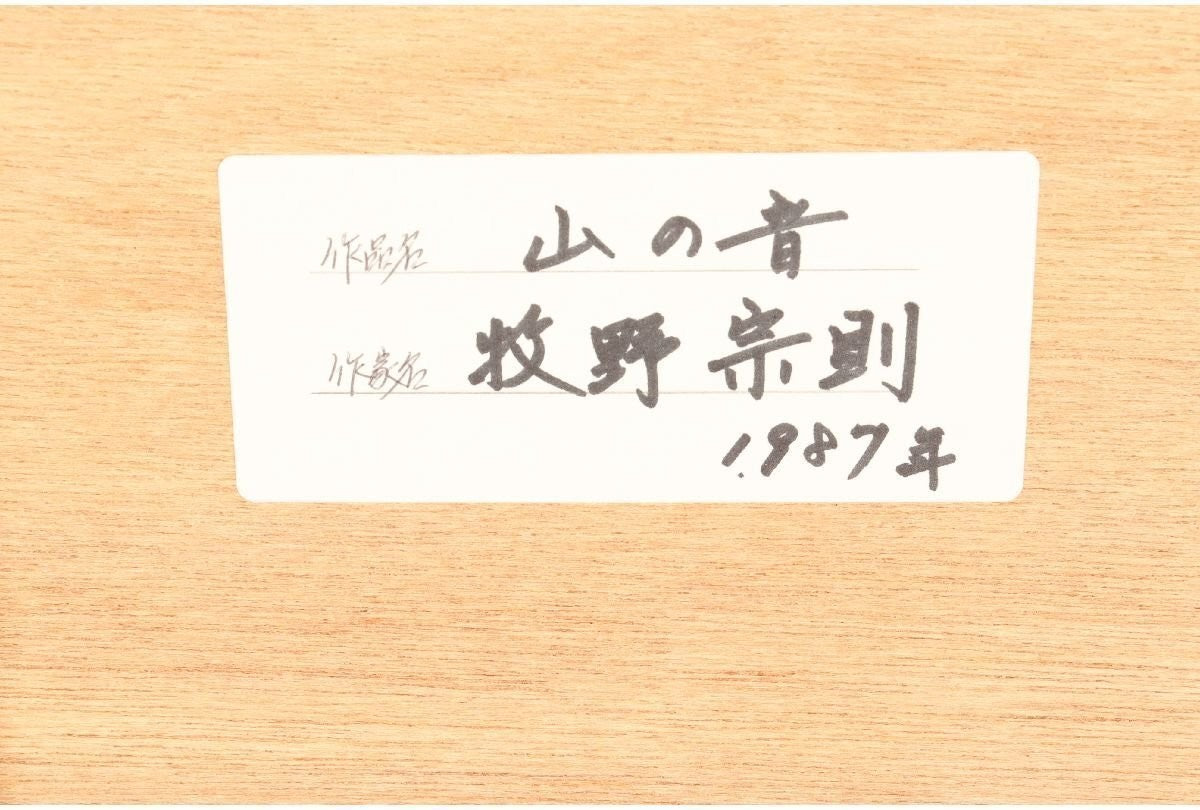 作品名 山の音
作家名 牧野宗則
1987年